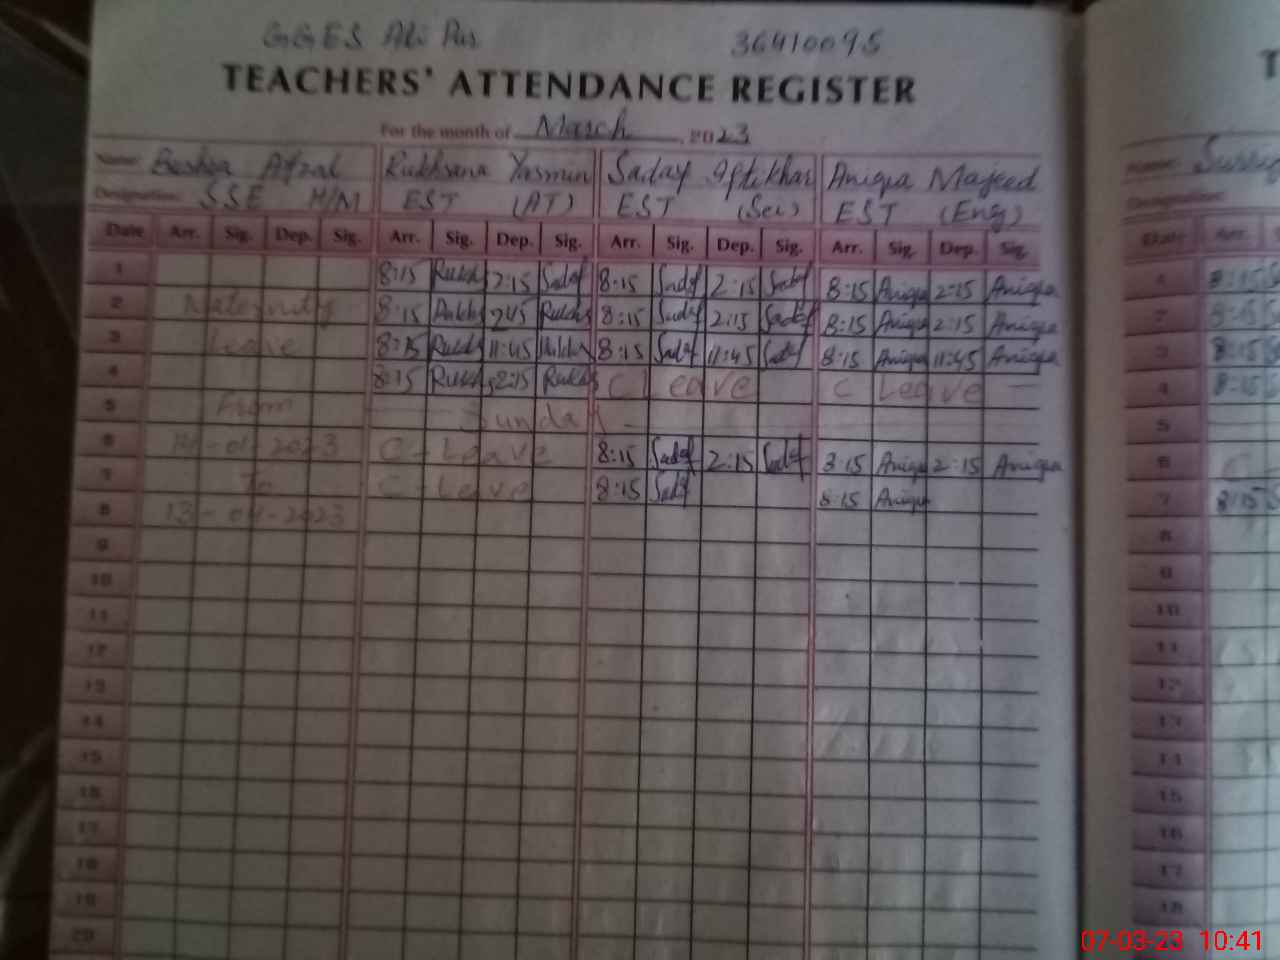 GGES Ali Pur 36410095
TEACHERS' ATTENDANCE REGISTER
For the month of March, 2023
Name: Bushra Afzal Rukhsana Yasmin Saday Iftikhar Aniqa Majeed
Designation: SSE H/M EST (AT) EST (Sci) EST (Eng)
Date Arr. Sig. Dep. Sig. Arr. Sig. Dep. Sig. Arr. Sig. Dep. Sig. Arr. Sig. Dep. Sig.
1 8:15 Rukhs 2:15 Sadaf 8:15 Sadaf 2:15 Sadaf 8:15 Aniqa 2:15 Aniqa
2 Maternity 8:15 Rukhs 2:45 Rukhs 8:15 Sadaf 2:15 Sadaf 8:15 Aniqa 2:15 Aniqa
3 Leave 8:15 Rukhs 11:45 Rukhs 8:15 Sadaf 11:45 Sadaf 8:15 Aniqa 11:45 Aniqa
4 8:15 Rukhs 2:15 Rukhs C Leave C Leave
5 From Sunday
6 -01-2023 C-Leave 8:15 Sadaf 2:15 Sadaf 8:15 Aniqa 2:15 Aniqa
7 To C-Leave 8:15 Sadaf 8:15 Aniqa
8 13-04-2023
9
10
11
12
13
14
15
16
17
18
19
20
T
Name:
Designation:
Date Arr.
1 8:15
2 8:15
3 8:15
4 8:15
5
6 C
7 8:15
8
9
10
11
12
13
14
15
16
17
18
07-03-23 10:41